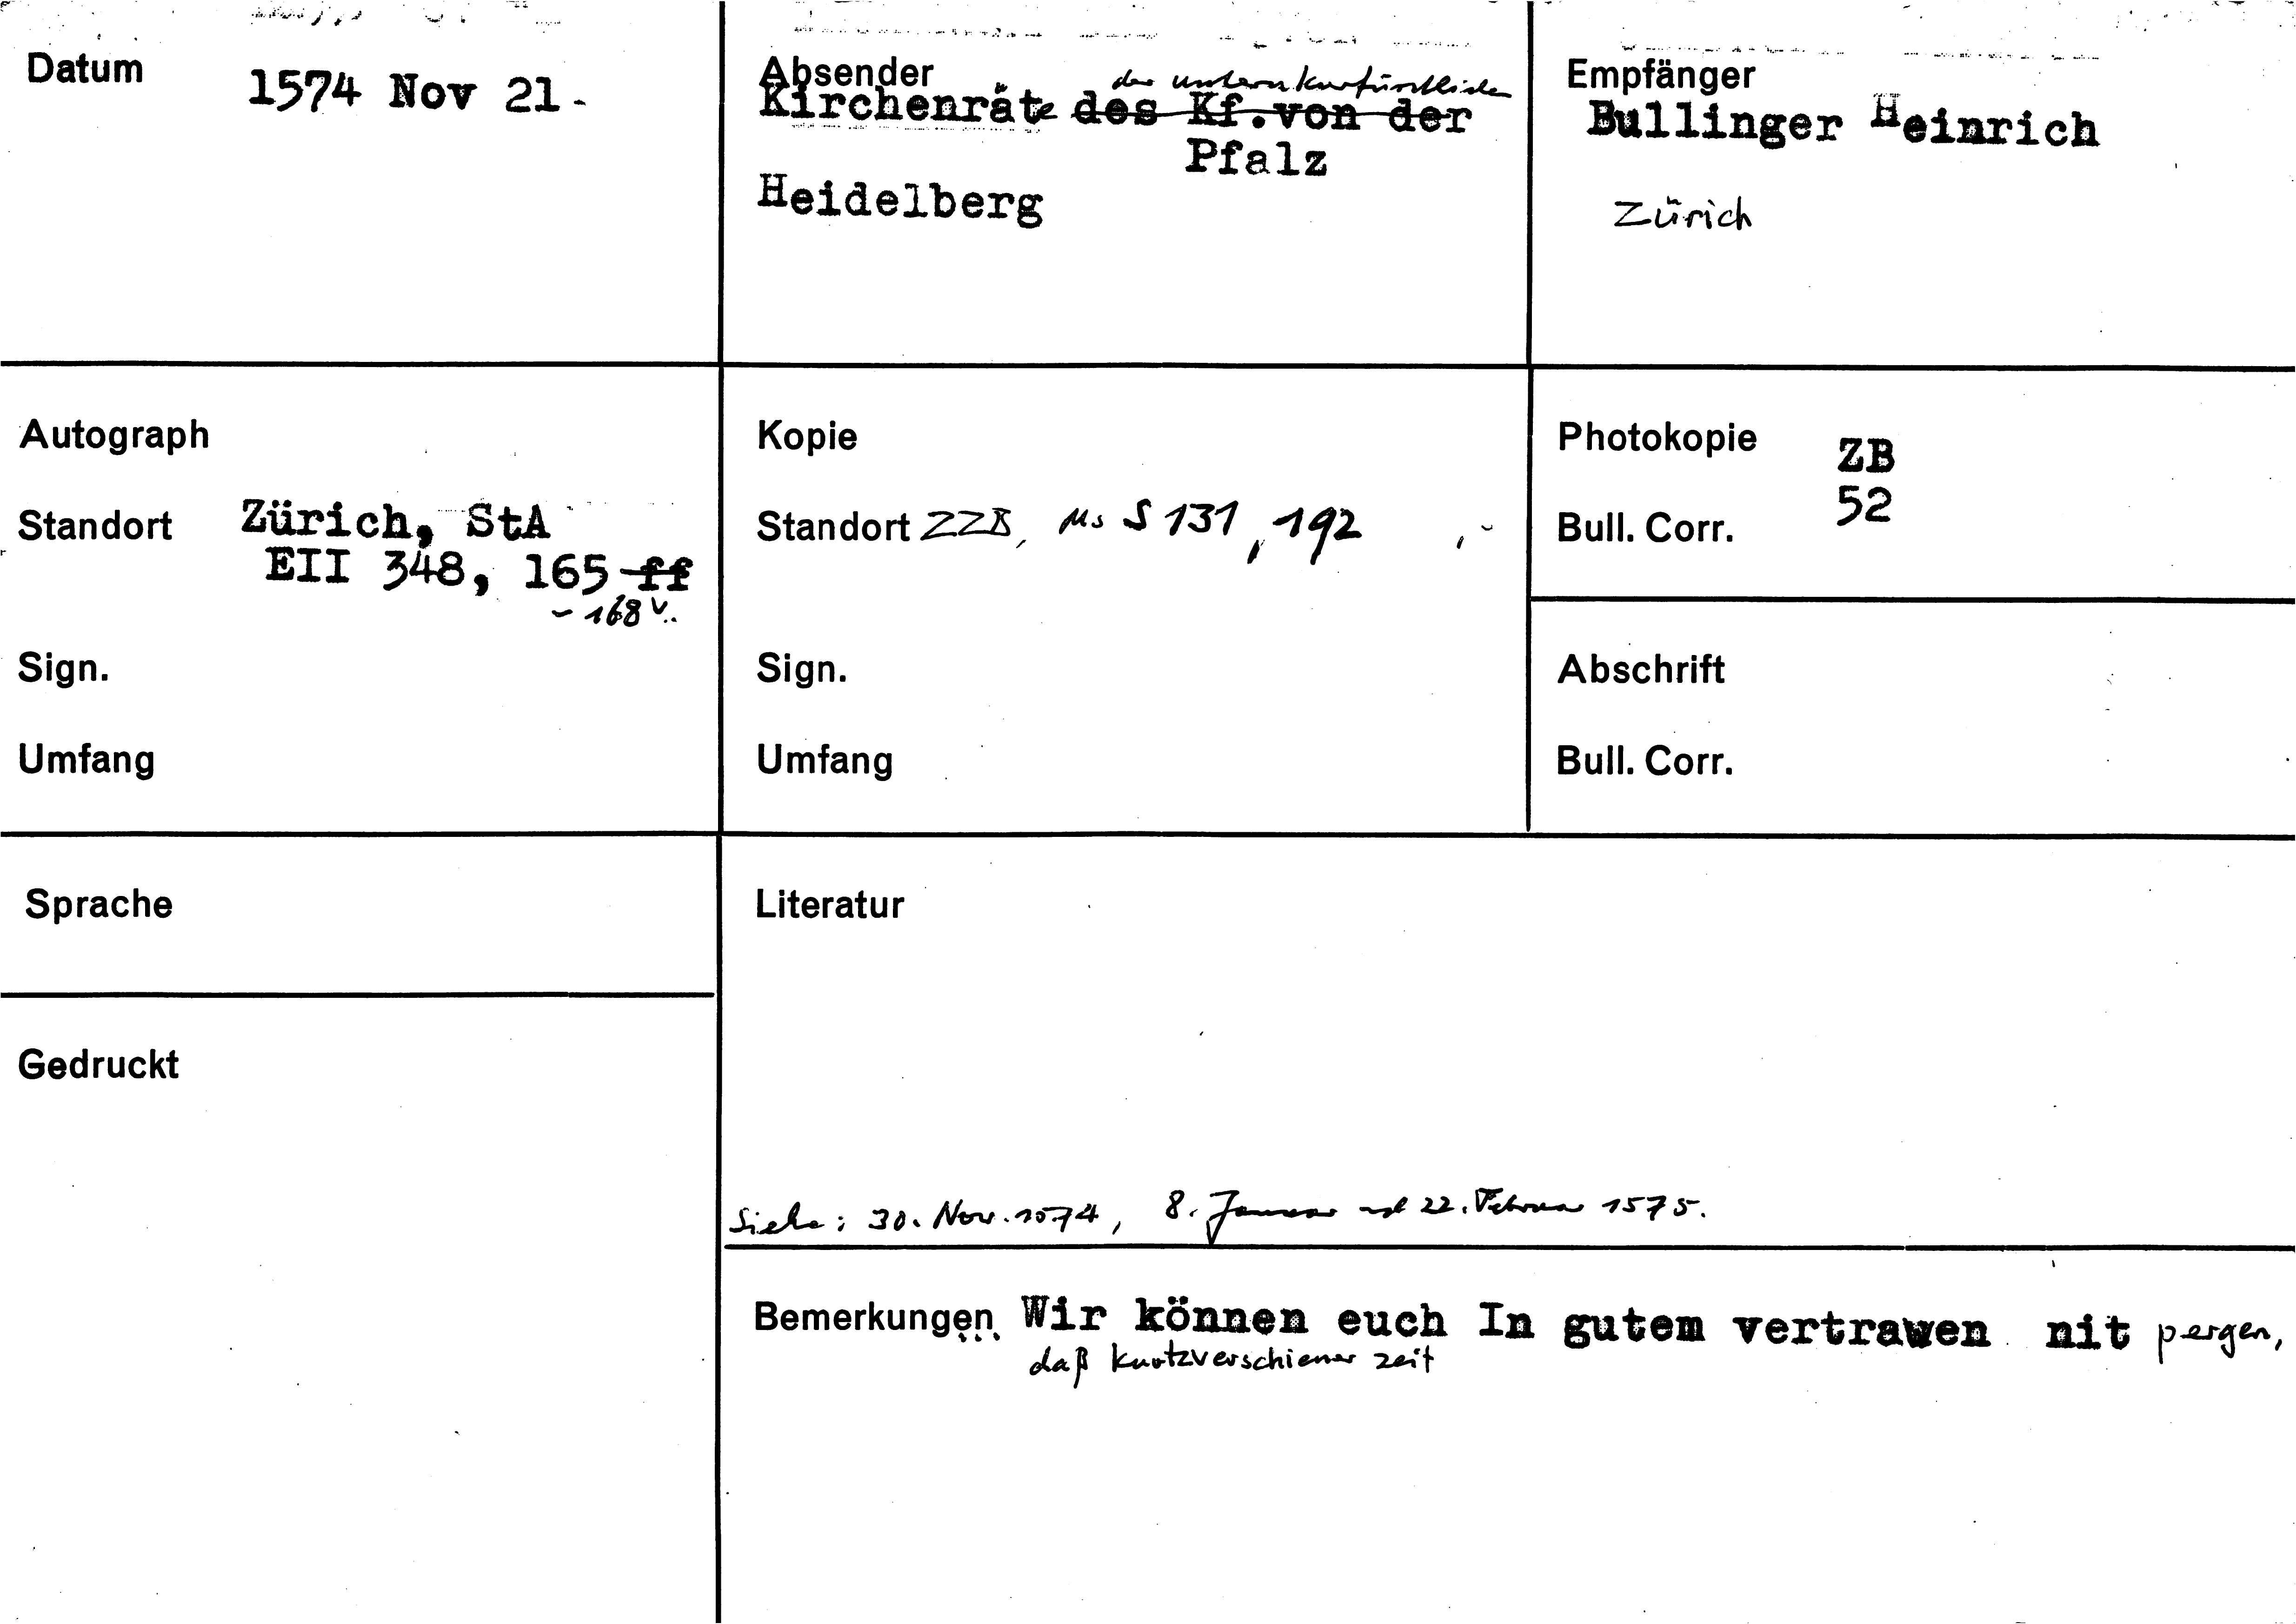 Datum
1574 Nov 21.
Absender
der untern kurfürstlichen
Kirchenräte des Kf. von der
Pfalz
Heidelberg
Empfänger
Bullinger Heinrich
Zürich
Autograph
Standort Zürich, StA
EII 348, 165 ff
- 168v.
Sign.
Umfang
Kopie
Standort ZZB, Ms S 131, 192
Sign.
Umfang
Photokopie ZB
Bull. Corr. 52
Abschrift
Bull. Corr.
Sprache
Gedruckt
Literatur
Siehe: 30. Nov. 1574, 8. Januar und 22. Februar 1575.
Bemerkungen Wir können euch In gutem vertrawen nit pergen,
daß kurtzverschiener zeit